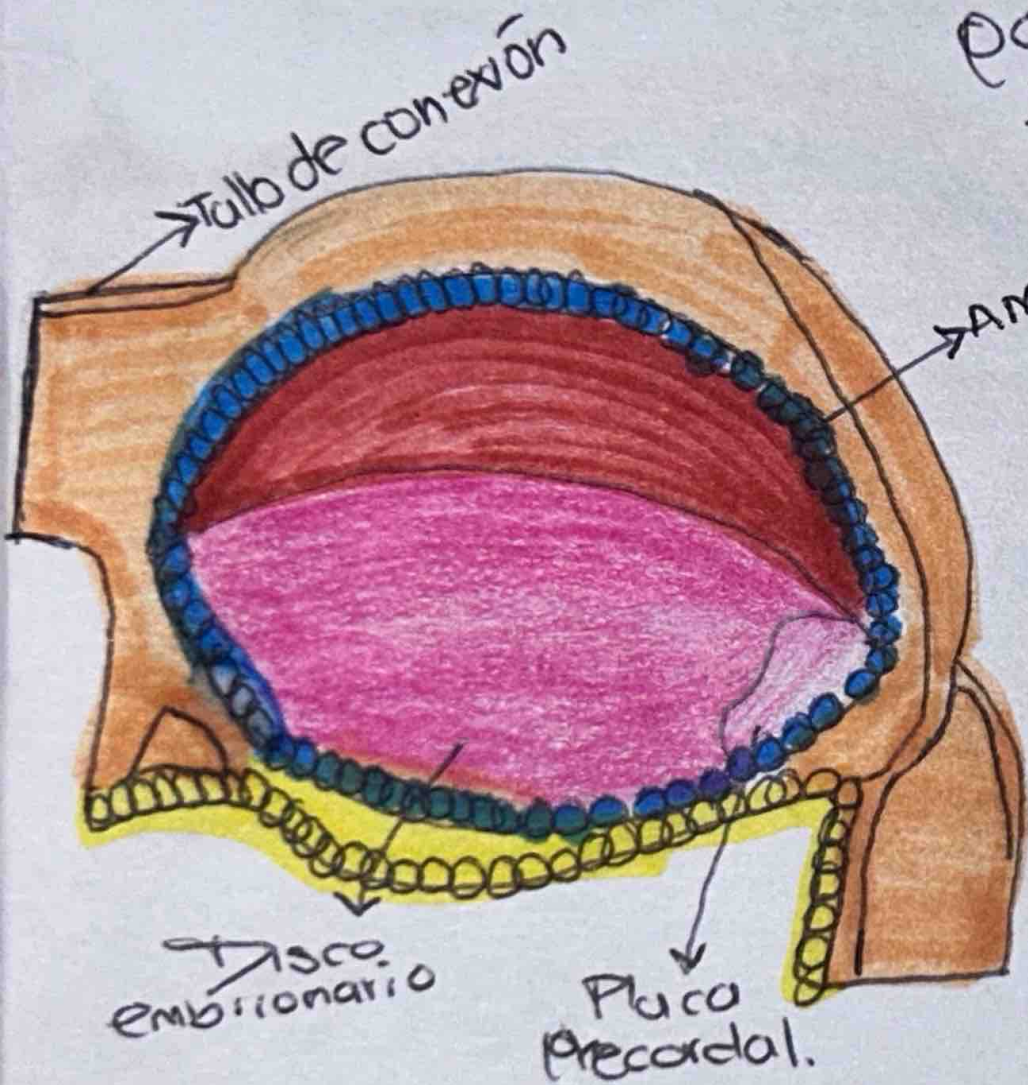 Tallo de conexión
Disco
embrionario
Placa
precordal.